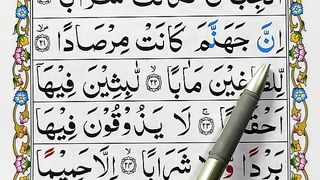 اِنَّ جَهَنَّمَ كَانَتْ مِرْصَادًا ۝۲۱
لِّلطّٰغِيْنَ مَاٰبًا ۝۲۲ لّٰبِثِيْنَ فِيْهَا
اَحْقَابًا ۝۲۳ لَا يَذُوْقُوْنَ فِيْهَا
بَرْدًا وَّلَا شَرَابًا ۝۲۴ اِلَّا حَمِيْمًا